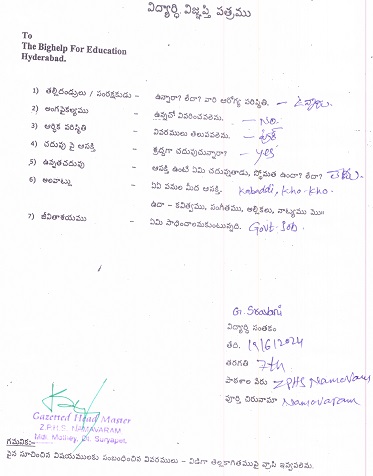 విద్యార్థి విజ్ఞప్తి పత్రము
To
The Bighelp For Education
Hyderabad.
1) తల్లిదండ్రులు / సంరక్షకుడు - ఉన్నారా? లేదా? వారి ఆరోగ్య పరిస్థితి. - ఉన్నారు.
2) అంగవైకల్యము - ఉన్నచో వివరించవలెను. - No.
3) ఆర్థిక పరిస్థితి - వివరములు తెలుపవలెను. -
4) చదువు పై ఆసక్తి - శ్రద్ధగా చదువుచున్నారా? - yes
5) ఉన్నతచదువు - ఆసక్తి ఉంటే ఏమి చదువుతాడు, స్తోమత ఉందా? లేదా?
6) అలవాట్లు - ఏఏ పనుల మీద ఆసక్తి. Kabaddi, Kho-Kho.
ఉదా - కవిత్వము, సంగీతము, అల్లికలు, నాట్యము మొ॥
7) జీవితాశయము - ఏమి సాధించాలనుకుంటున్నది. Govt. Job.
G. Sravani
విద్యార్థి సంతకం
తేది. 19/6/2024
తరగతి 7th
పాఠశాల పేరు ZPHS Namavaram
పూర్తి చిరునామా Namavaram
Gazetted Head Master
Z.P.H.S. NAMAVARAM
Mdl: Mothey, Dt. Suryapet.
గమనిక:-
పైన సూచించిన విషయములకు సంబంధించిన వివరములు - విడిగా తెల్లకాగితముపై వ్రాసి ఇవ్వవలెను.